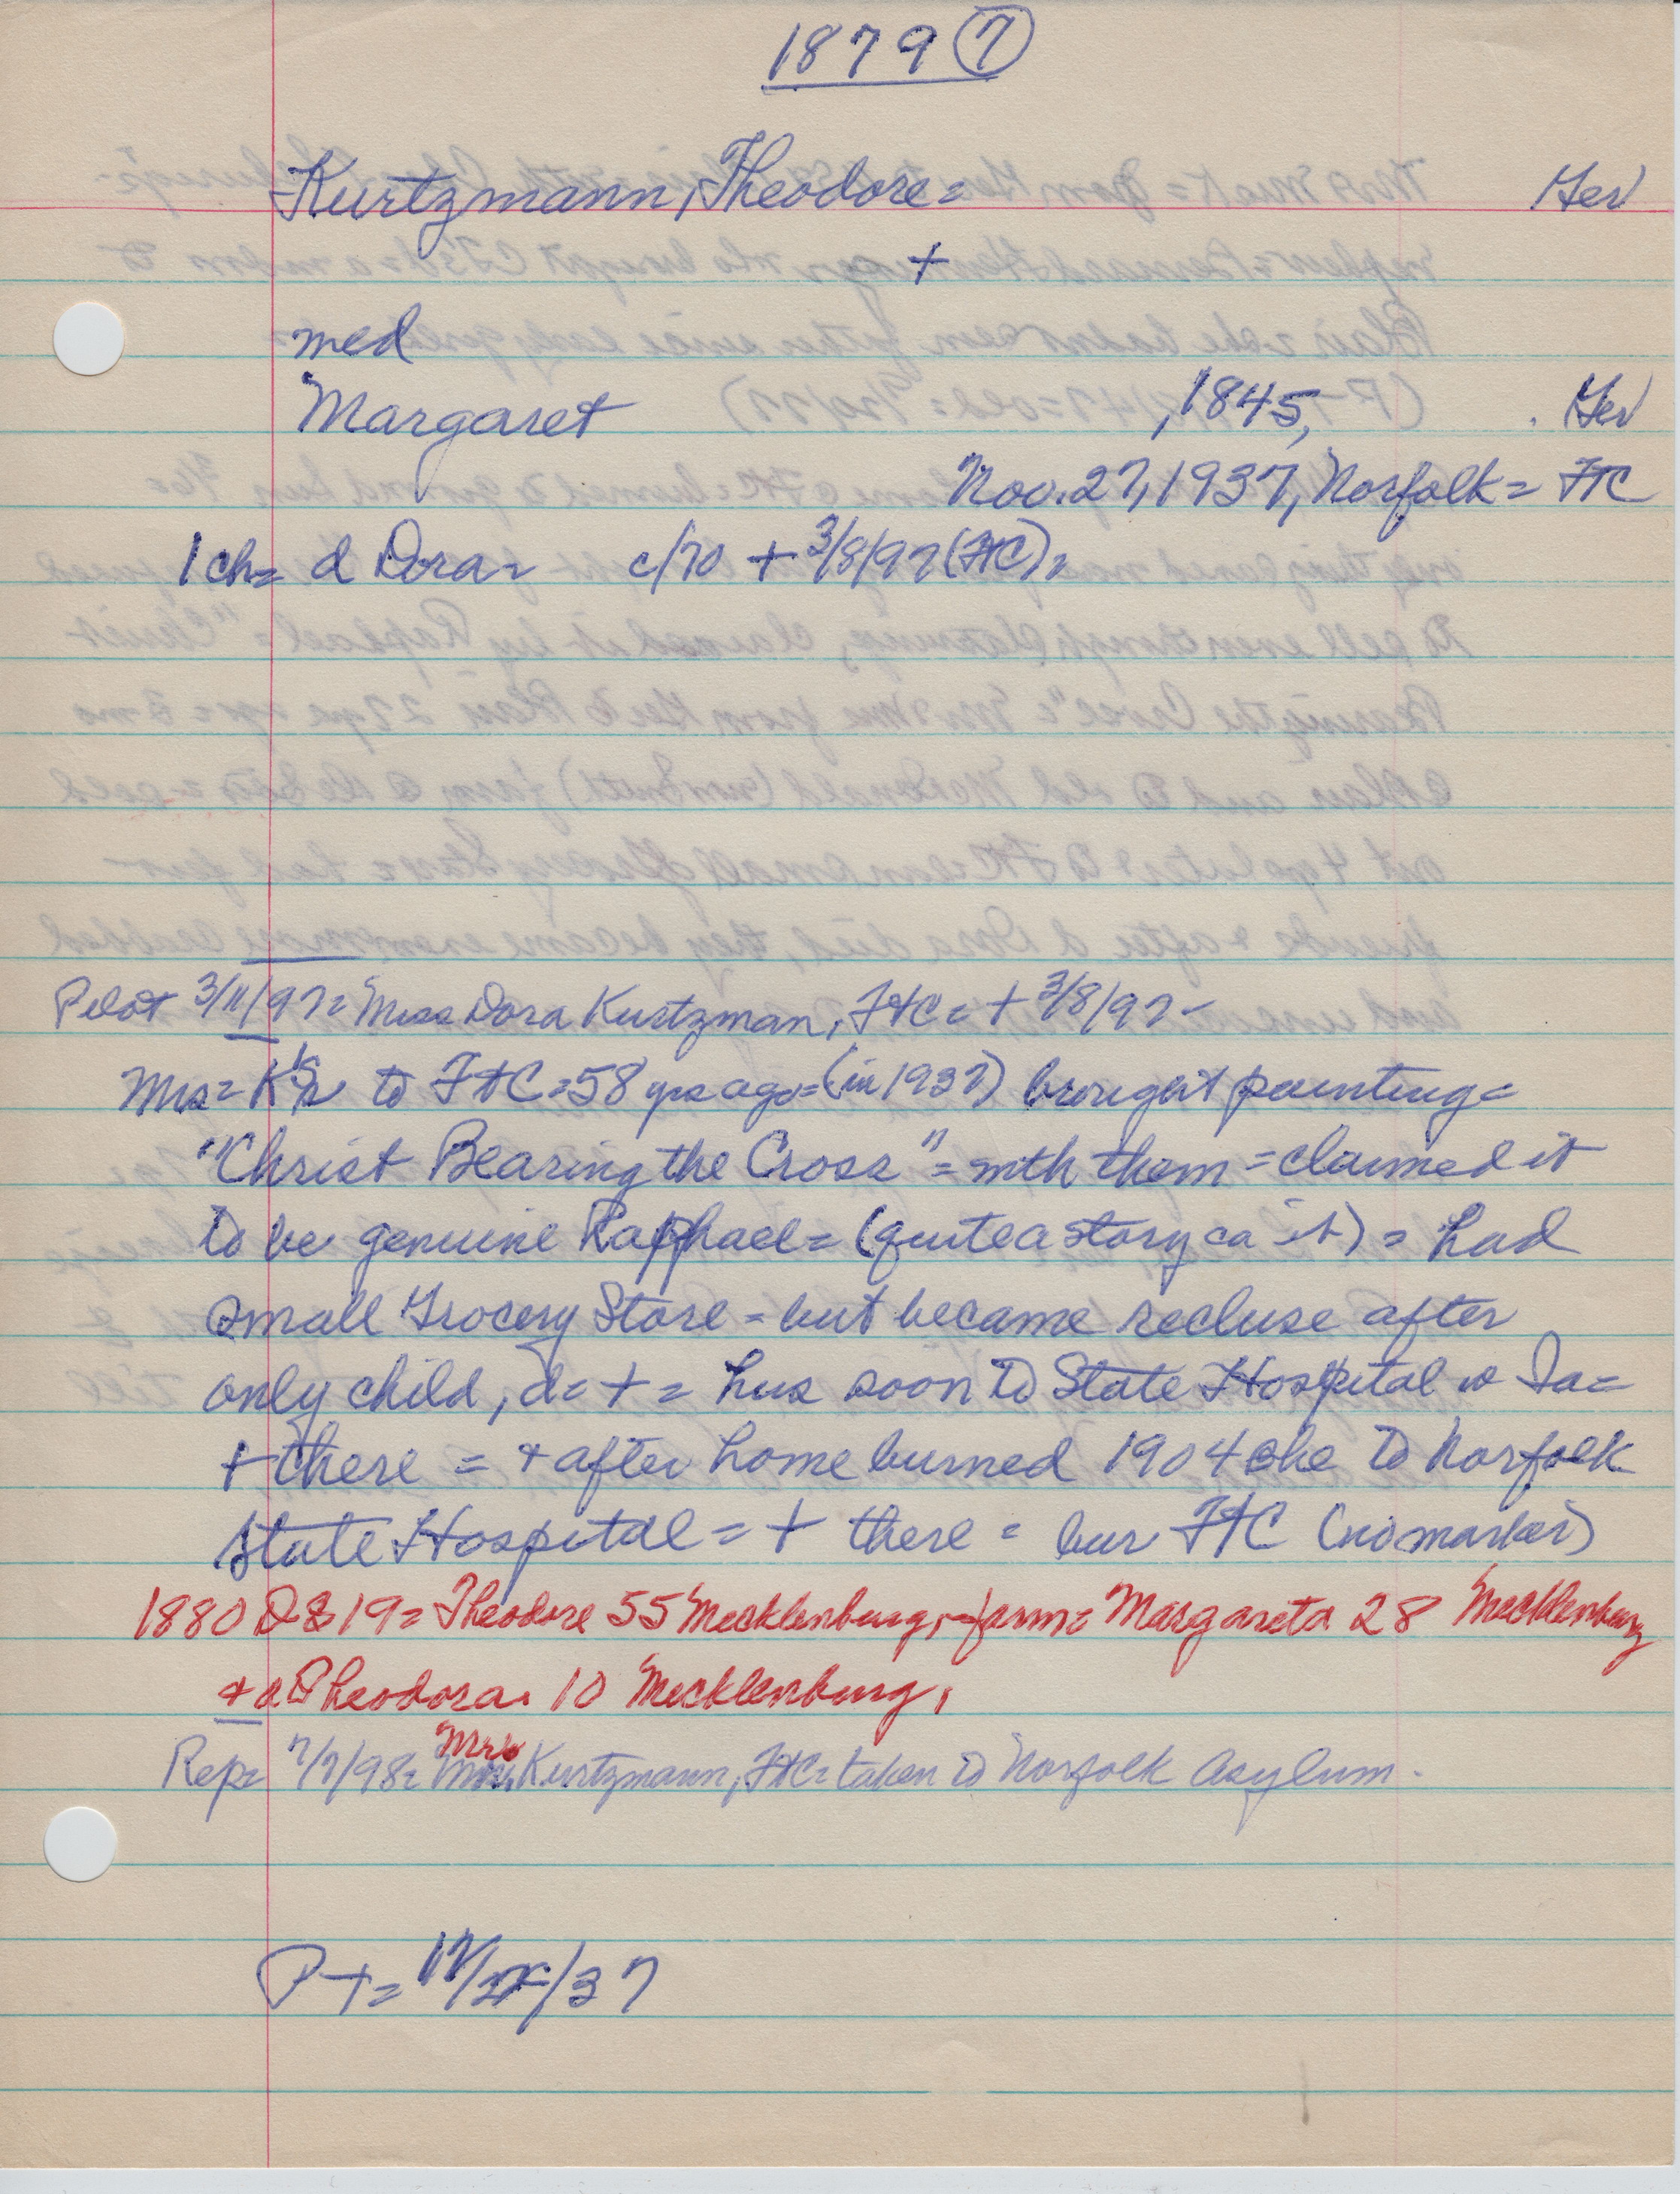 1879 (7)
Kurtzmann, Theodore = Ger
+
med
Margaret , 1845, Ger
Nov. 27, 1937, Norfolk = FtC
1 ch = d Dora = c/70 + 3/8/97 (FtC) =
Pilot 3/11/97 = Miss Dora Kurtzman, FtC = + 3/8/97 -
Mrs = K's to FtC = 58 yrs ago = (in 1937) brought painting =
"Christ Bearing the Cross" = with them = claimed it
to be genuine Raphael = (quite a story ca it) = had
small Grocery Store - but became recluse after
only child, d = + = hus soon to State Hospital Ia =
+ there = + after home burned 1904 she to Norfolk
State Hospital = + there = bur FtC (no marker)
1880 D&19 = Theodore 55 Mecklenburg, - farm = Margareta 28 Mecklenburg
+ d Theodora 10 Mecklenburg,
Rep = 7/7/98 = Mrs Kurtzmann, FtC = taken to Norfolk Asylum.
P-T =